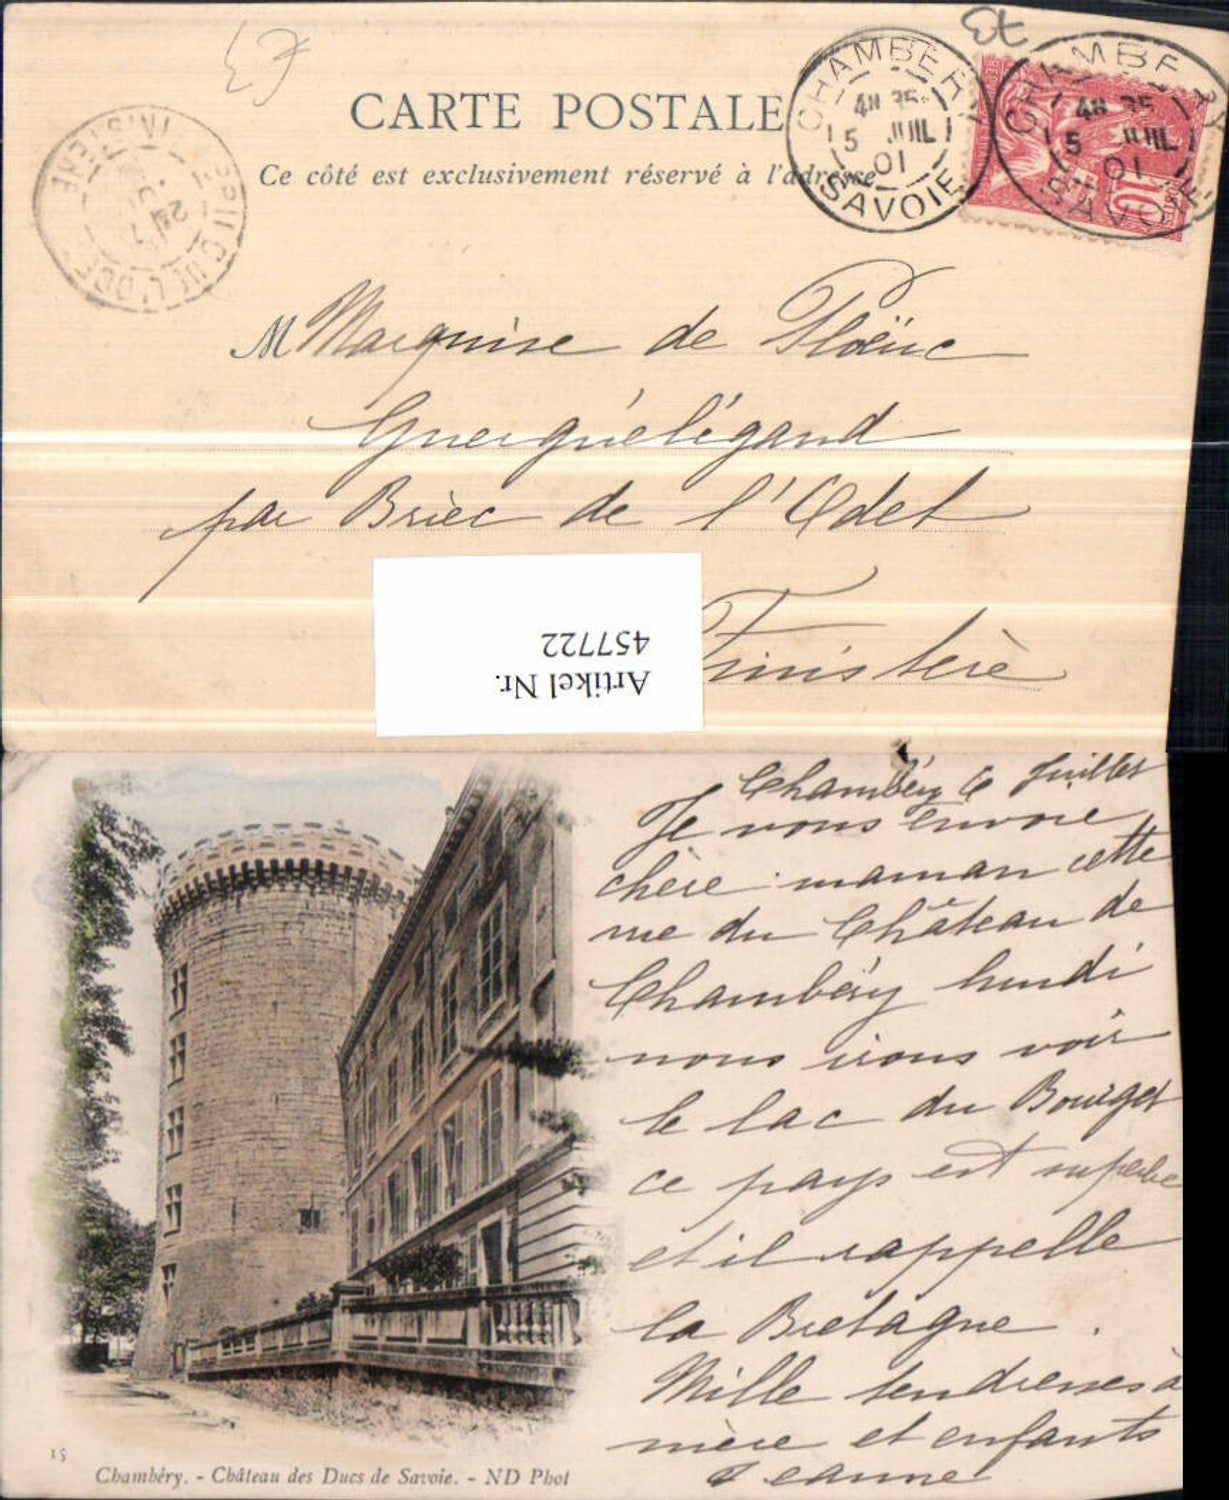 CARTE POSTALE
Ce côté est exclusivement réservé à l'adresse
CHAMBERY
4H 35
5 JUIL
01
SAVOIE
CHAMBERY
4H 35
5 JUIL
01
SAVOIE
10
M Marquise de Ploëuc
Guerguélégand
par Briec de l'Odet
Finistère
Artikel Nr.
457722
Chambéry 6 Juillet
Je vous envoie
chère maman cette
vue du Château de
Chambéry lundi
nous irons voir
le lac du Bourget
ce pays est superbe
et il rappelle
la Bretagne.
Mille tendresses à
mère et enfants
Jeanne
15
Chambéry. - Château des Ducs de Savoie. - ND Phot